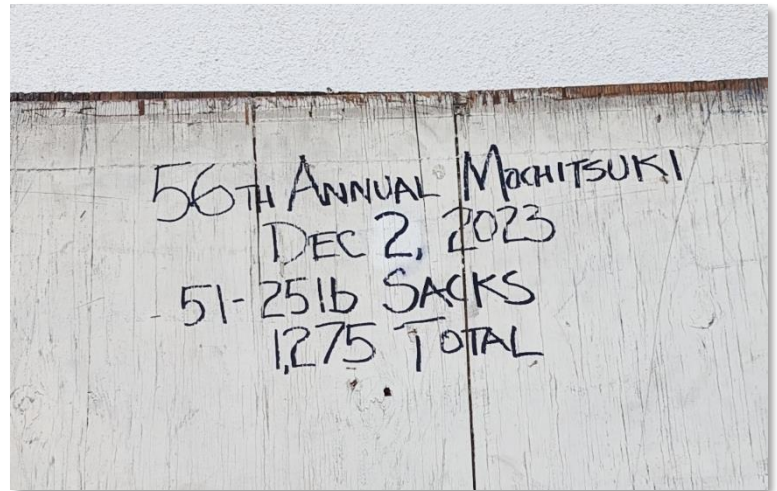 56TH ANNUAL MOCHITSUKI
DEC 2, 2023
51-25lb SACKS
1,275 TOTAL